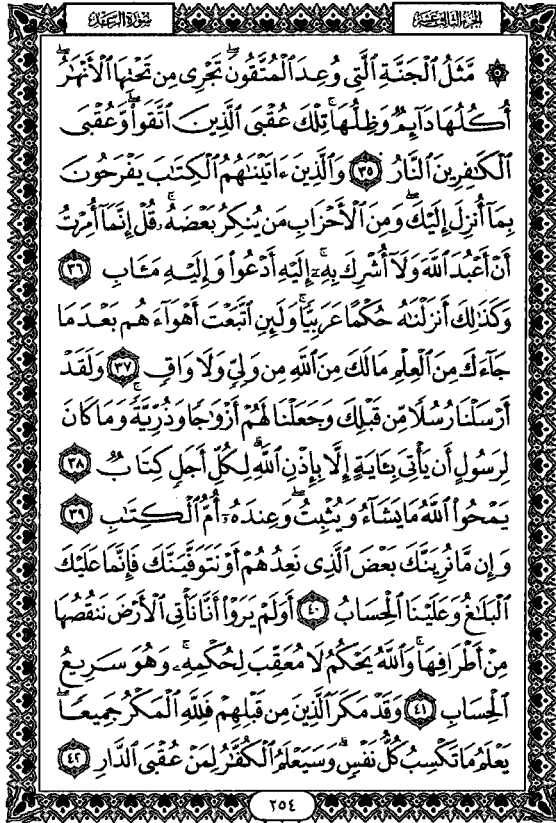 سُورَةُ الرَّعْدِ
الجُزْءُ الثَّالِثَ عَشَرَ
۞ مَّثَلُ ٱلْجَنَّةِ ٱلَّتِى وُعِدَ ٱلْمُتَّقُونَۖ تَجْرِى مِن تَحْتِهَا ٱلْأَنْهَٰرُۖ
أُكُلُهَا دَآئِمٌ وَظِلُّهَاۚ تِلْكَ عُقْبَى ٱلَّذِينَ ٱتَّقَوا۟ۖ وَّعُقْبَى
ٱلْكَٰفِرِينَ ٱلنَّارُ ٣٥ وَٱلَّذِينَ ءَاتَيْنَٰهُمُ ٱلْكِتَٰبَ يَفْرَحُونَ
بِمَآ أُنزِلَ إِلَيْكَۖ وَمِنَ ٱلْأَحْزَابِ مَن يُنكِرُ بَعْضَهُۥۚ قُلْ إِنَّمَآ أُمِرْتُ
أَنْ أَعْبُدَ ٱللَّهَ وَلَآ أُشْرِكَ بِهِۦٓۚ إِلَيْهِ أَدْعُوا۟ وَإِلَيْهِ مَـَٔابِ ٣٦
وَكَذَٰلِكَ أَنزَلْنَٰهُ حُكْمًا عَرَبِيًّاۚ وَلَئِنِ ٱتَّبَعْتَ أَهْوَآءَهُم بَعْدَ مَا
جَآءَكَ مِنَ ٱلْعِلْمِ مَا لَكَ مِنَ ٱللَّهِ مِن وَلِىٍّ وَلَا وَاقٍ ٣٧ وَلَقَدْ
أَرْسَلْنَا رُسُلًا مِّن قَبْلِكَ وَجَعَلْنَا لَهُمْ أَزْوَٰجًا وَذُرِّيَّةًۚ وَمَا كَانَ
لِرَسُولٍ أَن يَأْتِىَ بِـَٔايَةٍ إِلَّا بِإِذْنِ ٱللَّهِۗ لِكُلِّ أَجَلٍ كِتَابٌ ٣٨
يَمْحُوا۟ ٱللَّهُ مَا يَشَآءُ وَيُثْبِتُۖ وَعِندَهُۥٓ أُمُّ ٱلْكِتَٰبِ ٣٩
وَإِن مَّا نُرِيَنَّكَ بَعْضَ ٱلَّذِى نَعِدُهُمْ أَوْ نَتَوَفَّيَنَّكَ فَإِنَّمَا عَلَيْكَ
ٱلْبَلَٰغُ وَعَلَيْنَا ٱلْحِسَابُ ٤٠ أَوَلَمْ يَرَوْا۟ أَنَّا نَأْتِى ٱلْأَرْضَ نَنقُصُهَا
مِنْ أَطْرَافِهَاۚ وَٱللَّهُ يَحْكُمُ لَا مُعَقِّبَ لِحُكْمِهِۦۚ وَهُوَ سَرِيعُ
ٱلْحِسَابِ ٤١ وَقَدْ مَكَرَ ٱلَّذِينَ مِن قَبْلِهِمْ فَلِلَّهِ ٱلْمَكْرُ جَمِيعًاۖ
يَعْلَمُ مَا تَكْسِبُ كُلُّ نَفْسٍۗ وَسَيَعْلَمُ ٱلْكُفَّٰرُ لِمَنْ عُقْبَى ٱلدَّارِ ٤٢
٢٥٤